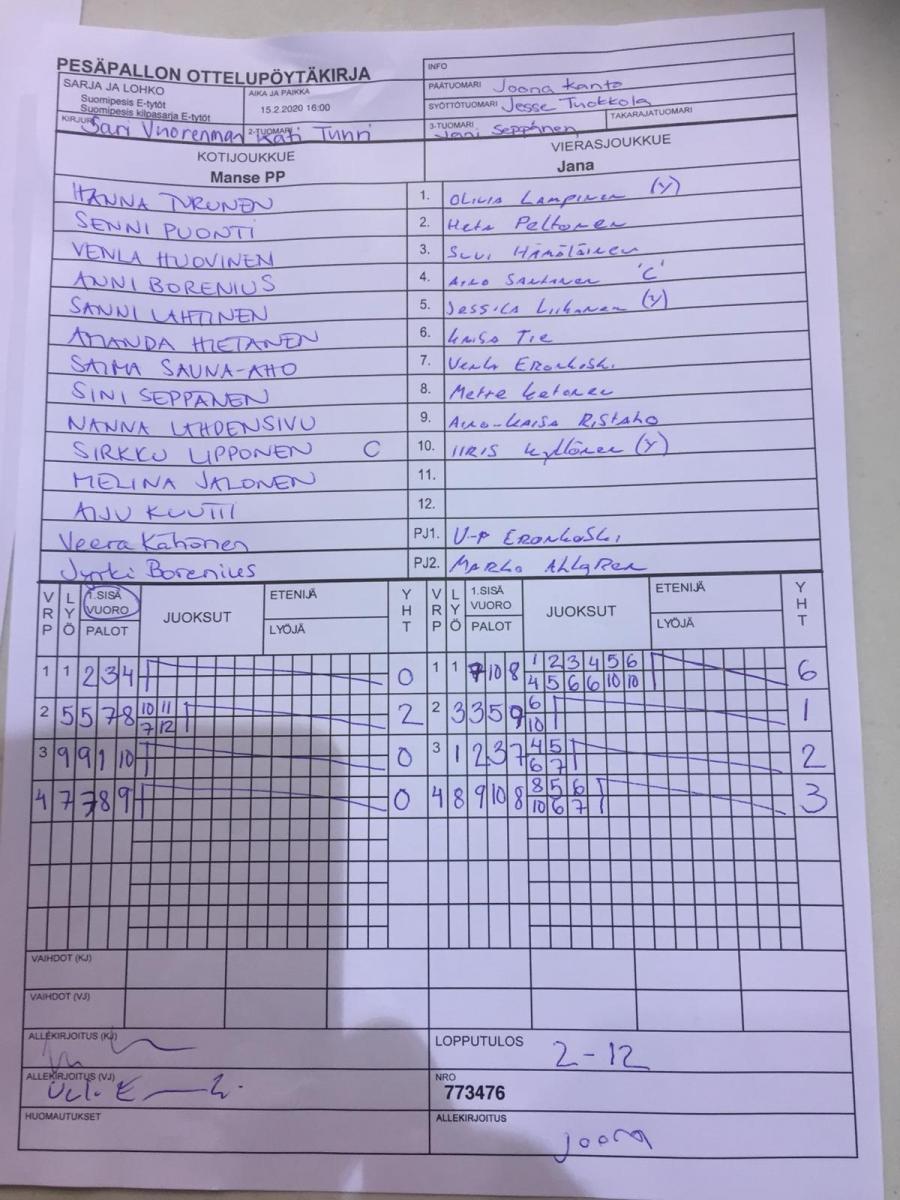 PESÄPALLON OTTELUPÖYTÄKIRJA
INFO
SARJA JA LOHKO
Suomipesis E-tytöt
Suomipesis kilpasarja E-tytöt
AIKA JA PAIKKA
15.2.2020 16:00
PÄÄTUOMARI Joona Kanto
SYÖTTÖTUOMARI Jesse Tuokkola
KIRJURI Sari Vuorenmaa 2-TUOMARI Kati Tunri 3-TUOMARI Jani Seppänen TAKARAJATUOMARI
KOTIJOUKKUE VIERASJOUKKUE
Manse PP Jana
HANNA TURUNEN 1. OLIVIA LAMPINEN (Y)
SENNI PUONTI 2. Heta Peltonen
VENLA HUOVINEN 3. Suvi Hämäläinen
ANNI BORENIUS 4. Aino Santanen 'C'
SANNI LAHTINEN 5. Jessica Liikanen (Y)
AMANDA HIETANEN 6. Kaisa Tie
SAIMA SAUNA-AHO 7. Venla Eronkoski
SINI SEPPÄNEN 8. Mette Ketonen
NANNA LAHDENSIVU 9. Aino-Kaisa Ristaho
SIRKKU LIPPONEN C 10. IIRIS Kyllönen (Y)
MELINA JALONEN 11.
AIJU KUUTTI 12.
Veera Kähönen PJ1. U-P Eronkoski
Jyrki Borenius PJ2. Marko Ahlgren
VRP LYÖ 1.SISÄ VUORO PALOT JUOKSUT ETENIJÄ LYÖJÄ YHT VRP LYÖ 1.SISÄ VUORO PALOT JUOKSUT ETENIJÄ LYÖJÄ YHT
1 1 2 3 4 0 1 1 7 10 8 1 2 3 4 5 6 6
4 5 6 6 10 10
2 5 5 7 8 10 11 2 2 3 3 5 9 6 1
7 12 10
3 9 9 1 10 0 3 1 2 3 7 4 5 2
6 7
4 7 7 8 9 0 4 8 9 10 8 8 5 6 3
10 6 7
VAIHDOT (KJ)
VAIHDOT (VJ)
ALLEKIRJOITUS (KJ)
LOPPUTULOS 2-12
ALLEKIRJOITUS (VJ)
NRO
773476
HUOMAUTUKSET
ALLEKIRJOITUS
Joona